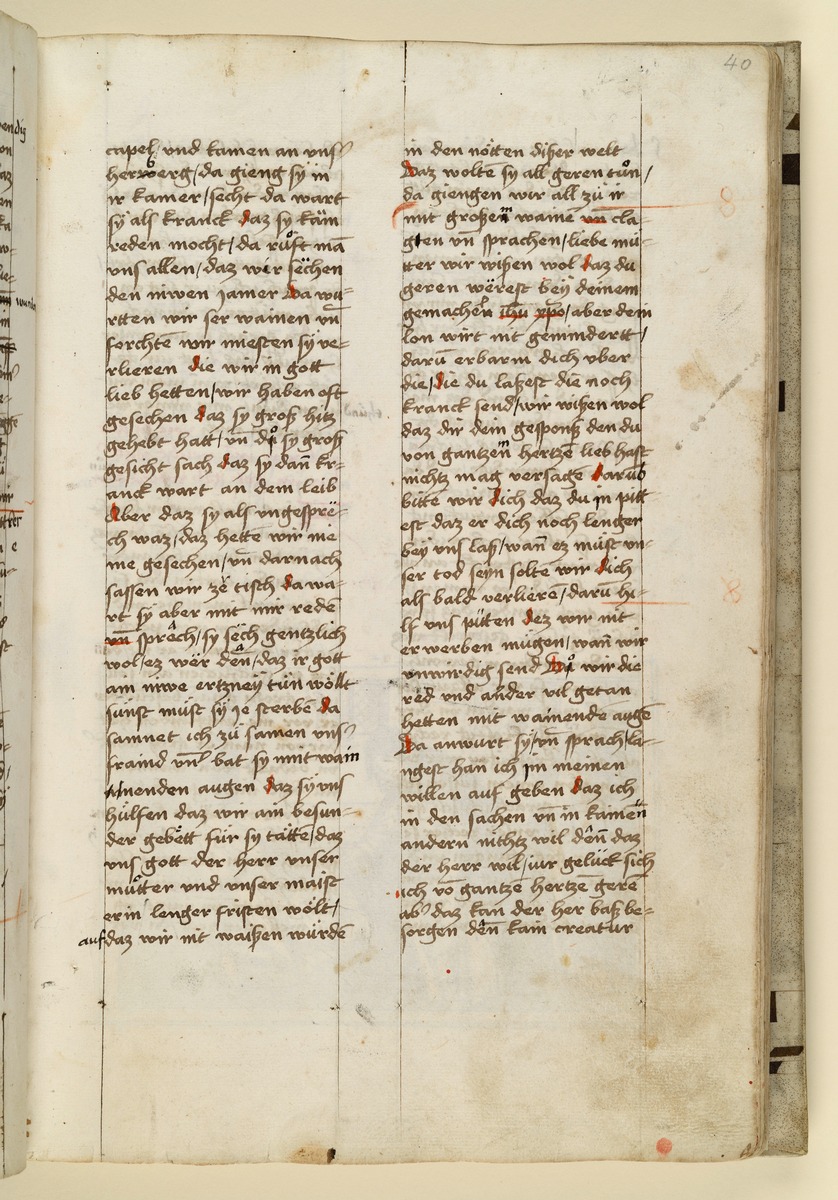 40
capel / vnd kamen an vnsʾ
herwberg / da gieng sÿ in
ir kamer / secht da wart
sÿ als kranck daz sÿ käm
reden mocht / da růft mā
vns allen / daz wir sëchen
den niwen jamer Da wu-
rtten wir ser wainen vn̄
forchtē wir miesten sÿ ve-
rlieren die wir in gott
lieb hetten / wir haben oft
gesechen daz sÿ groß hitz
gehebt hatt / vn̄ do sÿ groß
gesicht sach daz sÿ dan̄ kr-
anck wart an dem leib
Aber daz sÿ als vngesprë-
ch waz / daz hettē wir nie
me gesechen / vn̄ darnach
sassen wir ze tisch da wa-
rt sÿ aber mit mir redē
vn̄ sprach / sÿ sëch gentzlich
wol / ez wër den̄ / daz ir gott
ain niwe ertzneÿ tün wöllt
sünst müst sÿ je sterbē da
samnet ich zü samen vnsʾ
fraind vn̄ bat sÿ mit wain
nenden augen daz sÿ vns
hülfen daz wir ain besun-
der gebëtt für sÿ tätte / daz
vns gott der herr vnser
mütter vnd vnser maist
erin lenger fristen wölt /
auf daz wir nit waißen würdē
in den nötten dißer welt
Daz woltē sÿ all geren tůn /
da giengen wir all zü ir
mit großem waine vn̄ cla-
gten vn̄ sprachen / liebe mü-
tter wir wißen wol daz du
geren wërest beÿ deinem
gemacheln ihū xp̄o / aber dein
lon wirt nit gemindertt /
darū erbarm dich vber
die / die du laßest die noch
kranck send / wir wißen wol
daz dir dein gesponß den du
von gantzem hertzē lieb hast
nichtz mag versagē darūb
bittē wir dich daz du in pitt
est daz er dich noch lenger
beÿ vns laß / wan̄ ez müst vn-
ser tod seÿn solte wir dich
als bald verliere / darū hi-
lf vns pitten dez wir nit
erwerben mügen / wan̄ wir
vnwirdig send Do wir die
rëd vnd ander vil getan
hetten mit wainende augē
Da anwurt sÿ / vn̄ sprach / la-
ngest han ich jn meinen
willen auf geben daz ich
in den sachen vn̄ in kainen
andern nichtz wil den̄ daz
der herr wil / iur gelück sich
ich vō gantzē hertzē gerē
abʾ daz kan der her baß be-
sorgen den̄ kain creatur